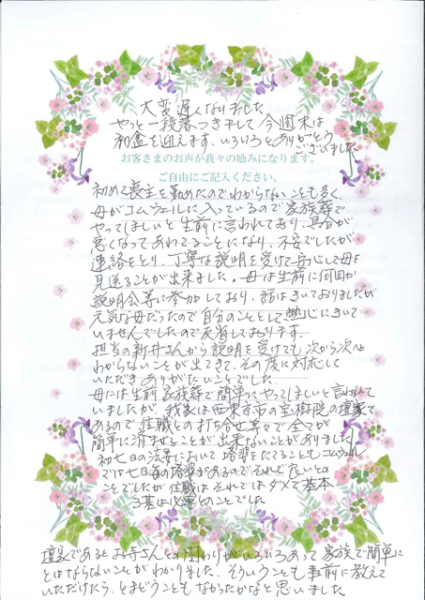 大変遅くなりました
やっと一段落つきまして今週末は
初盆を迎えます。いろいろとありがとう
ございました
お客さまのお声が我々の励みになります。
ご自由にご記入ください。
初めて喪主を勤めたのでわからないことも多く、
母がコムウェルに入っているので家族葬で
やってほしいと生前に言われており、具合が
悪くなってあわてることになり、不安でしたが
連絡をとり、丁寧な説明を受けて安心して母を
見送ることが出来ました。母は生前に何回か
説明会等に参加しており、話はきいておりましたが
元気な母だったので自分のこととして熱心にきいて
いませんでしたので反省しております。
担当の新井さんから説明を受けても次から次へ
わからないことが出てきて、その度に対応して
いただきありがたいことでした。
母には生前家族葬で簡単にやってほしいと言われて
いましたが、我家は西東京市の宝樹院の檀家で
あるので住職との打ち合せ等々で全てが
簡単に済ませることが出来ないことがありました
初七日の法要において塔婆をたてることもコムウェル
では七日目の塔婆があるのでそれで良いとの
ことでしたが住職はそれではダメで基本
3基は必要とのことでした
檀家であるとお寺さんとの関わりがいろいろあって家族で簡単に
とはならないことがわかりました。そういうことも事前に教えて
いただけたら、とまどうこともなかったかなと思いました